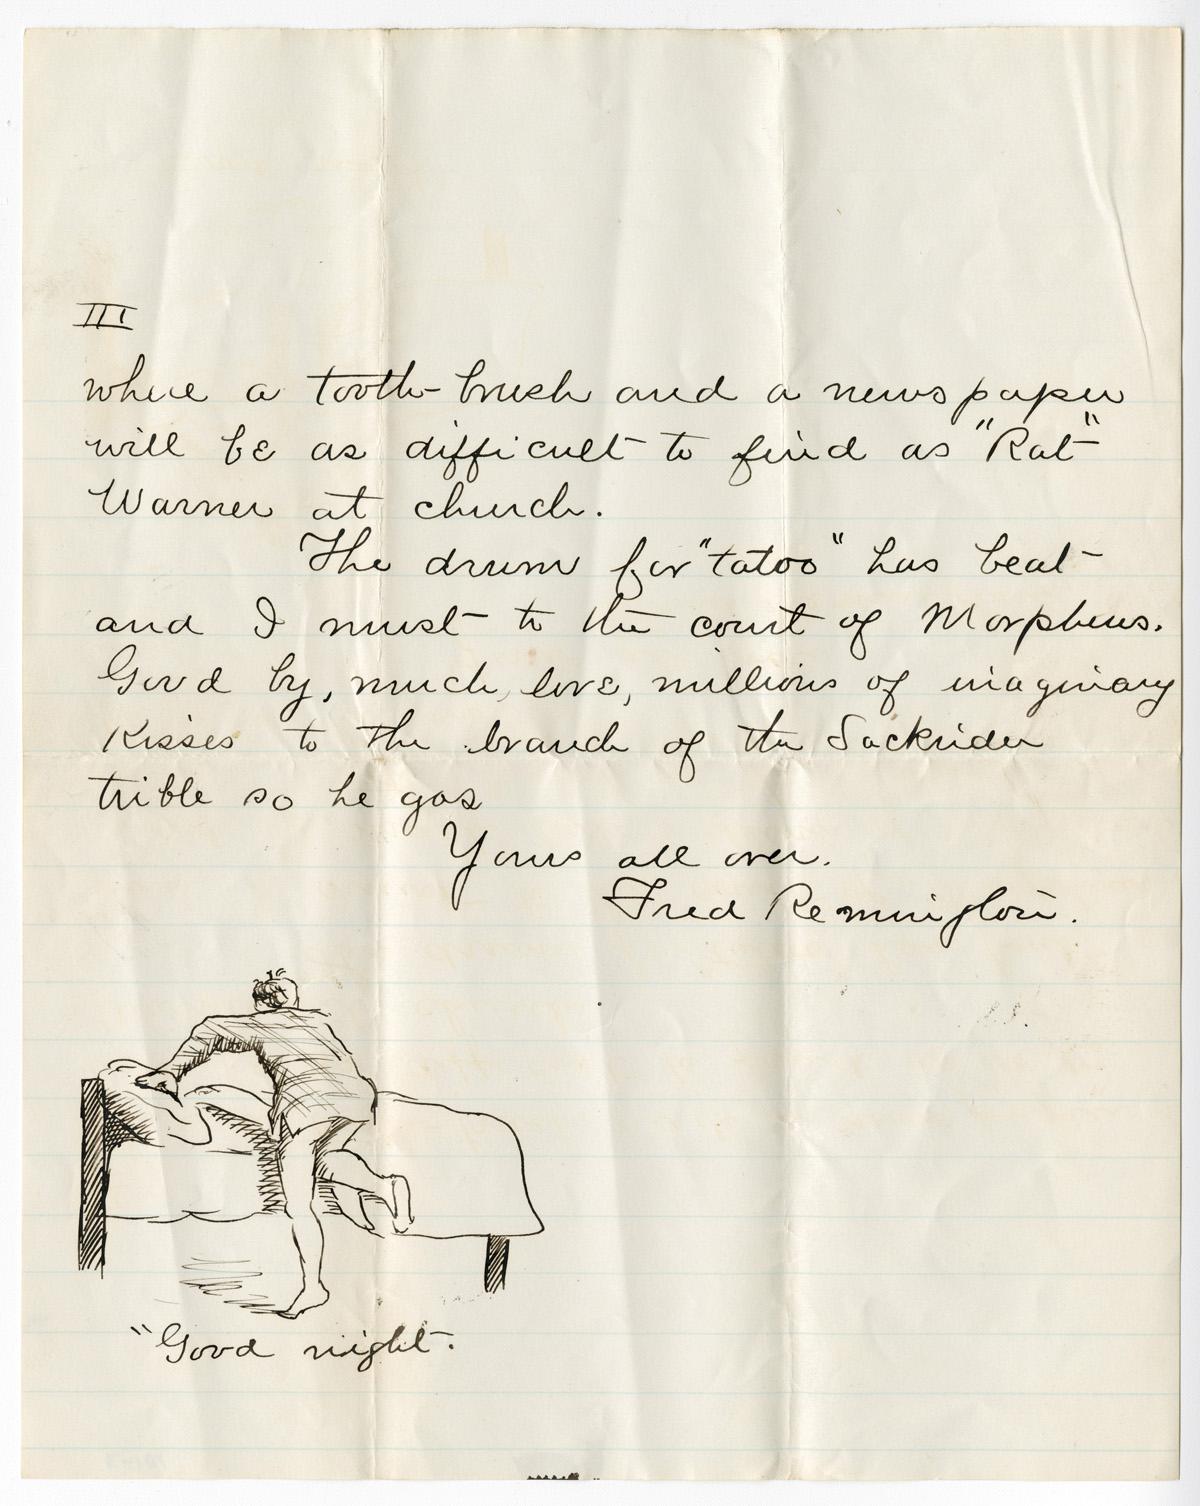 III
where a tooth-brush and a newspaper
will be as difficult to find as "Rat"
Warner at church.
The drum for "tatoo" has beat
and I must to the court of Morpheus.
Good by, much, love, millions of imaginary
Kisses to the branch of the Sackrider
trible so he gos
Yours all over.
Fred Remington.
"Good night.